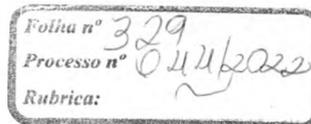 Folha nº 329
Processo nº 044/2022
Rubrica: